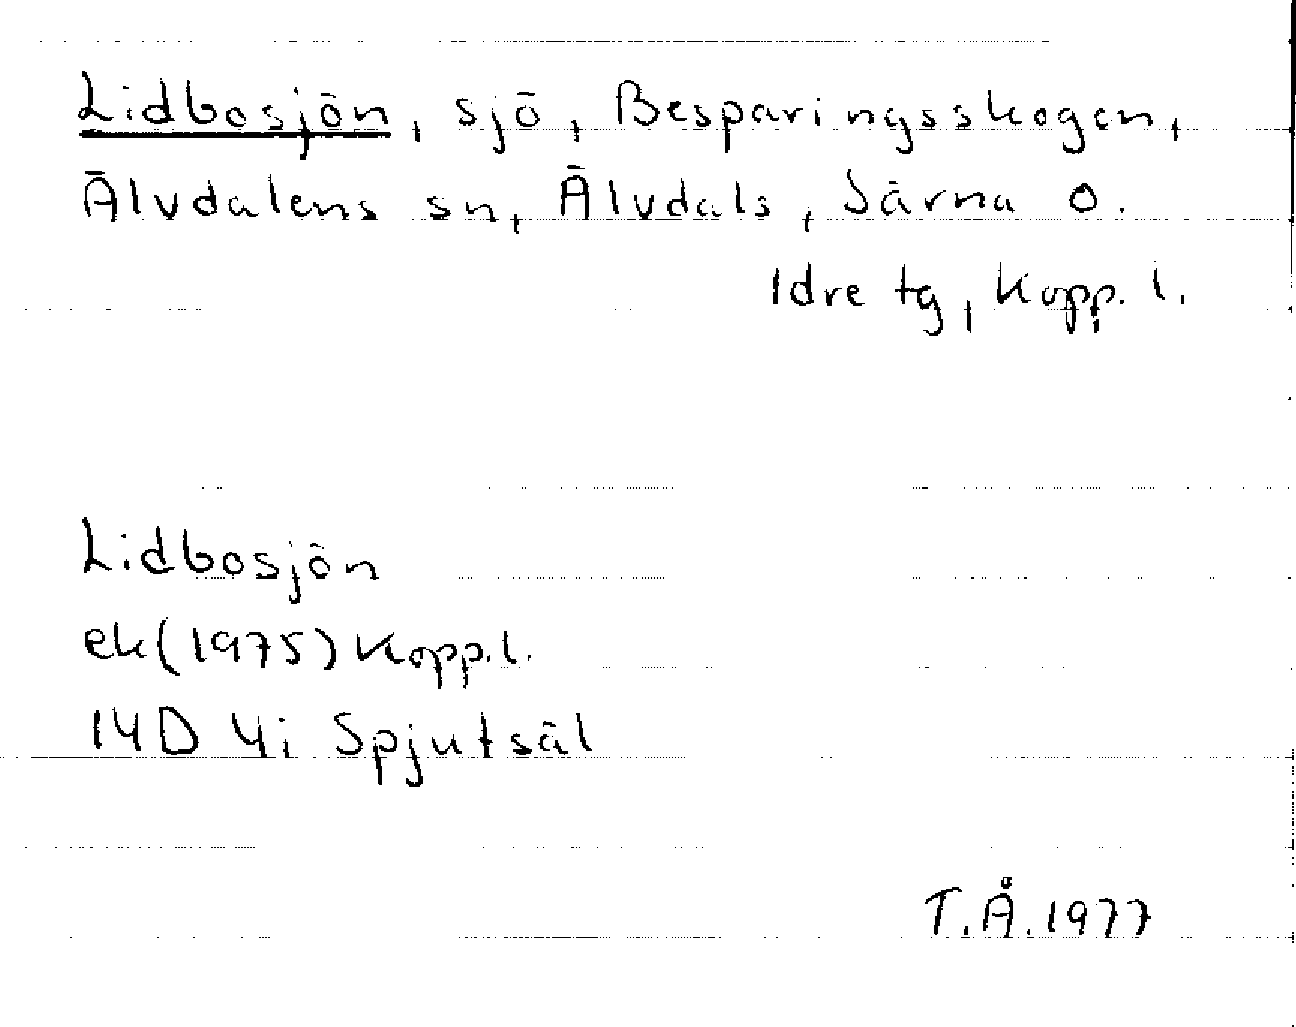 Lidbosjön, sjö, Besparingsskogen,
Älvdalens sn, Älvdals, Särna o.
Idre tg, Kopp. l.
Lidbosjön
ek(1975) Kopp.l.
14D 4i Spjutsäl
T.Å.1977